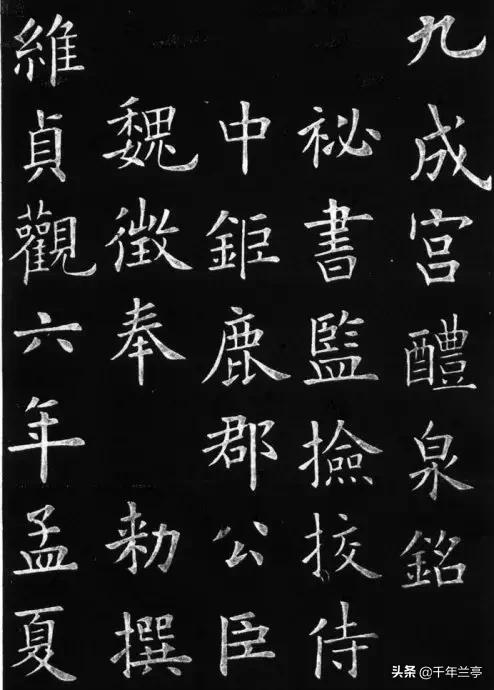 九成宮醴泉銘
祕書監撿挍侍
中鉅鹿郡公臣
魏徵奉 勑撰
維貞觀六年孟夏
头条 @千年兰亭